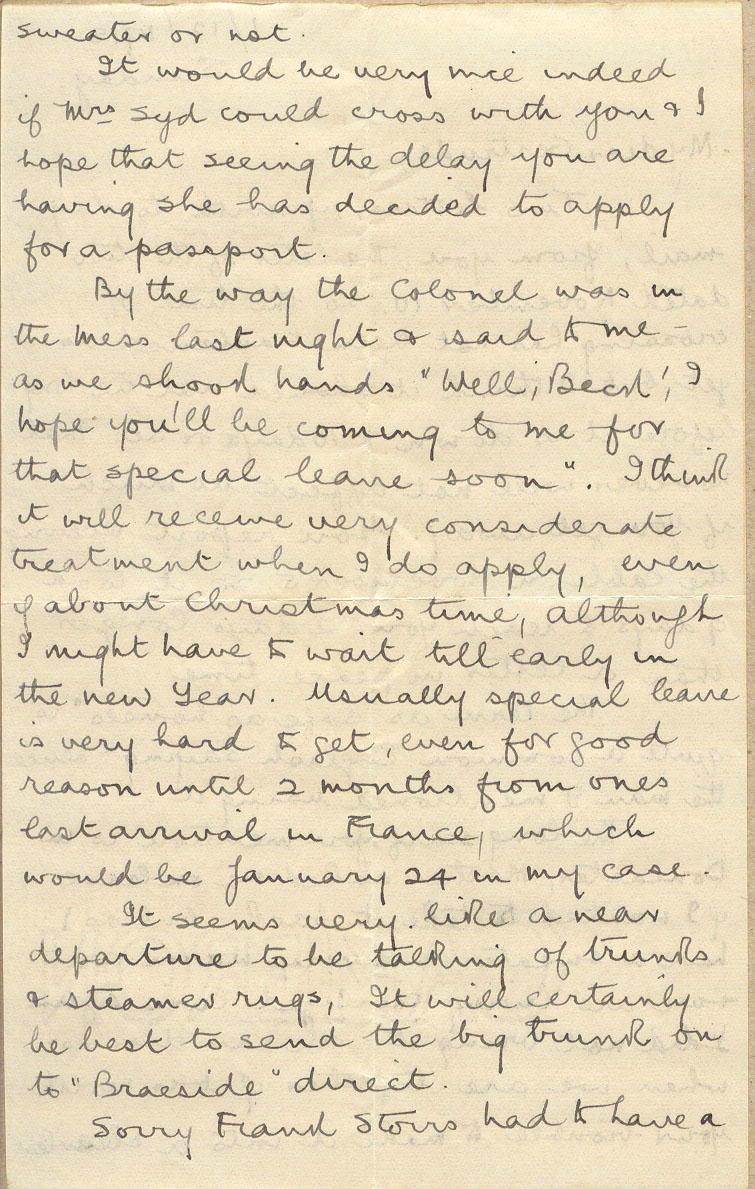 sweater or not.
It would be very nice indeed
if Mrs Syd could cross with you & I
hope that seeing the delay you are
having she has decided to apply
for a passport.
By the way the Colonel was in
the mess last night & said to me -
as we shook hands "Well, I
hope you'll be coming to me for
that special leave soon". I think
it will receive very considerate
treatment when I do apply, even
if about Christmas time, although
I might have to wait till early in
the new Year. Usually special leave
is very hard to get, even for good
reason until 2 months from ones
last arrival in France, which
would be January 24 in my case.
It seems very like a near
departure to be talking of trunks
& steamer rugs, It will certainly
be best to send the big trunk on
to "Braeside" direct.
Sorry Frank Storrs had to have a